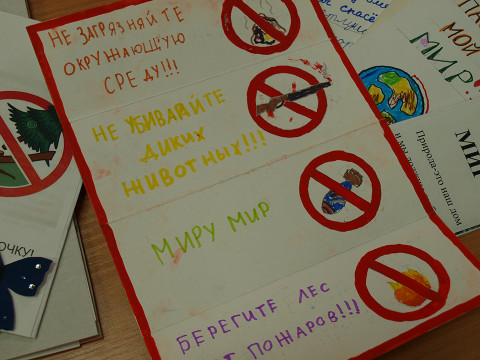 НЕ ЗАГРЯЗНЯЙТЕ
ОКРУЖАЮЩУЮ
СРЕДУ!!!
НЕ УБИВАЙТЕ
ДИКИХ
ЖИВОТНЫХ!!!
МИРУ МИР
БЕРЕГИТЕ ЛЕС
ПОЖАРОВ!!!
ОЧКУ!
МОЙ
МИР!
МИ
Природа-это наш дом